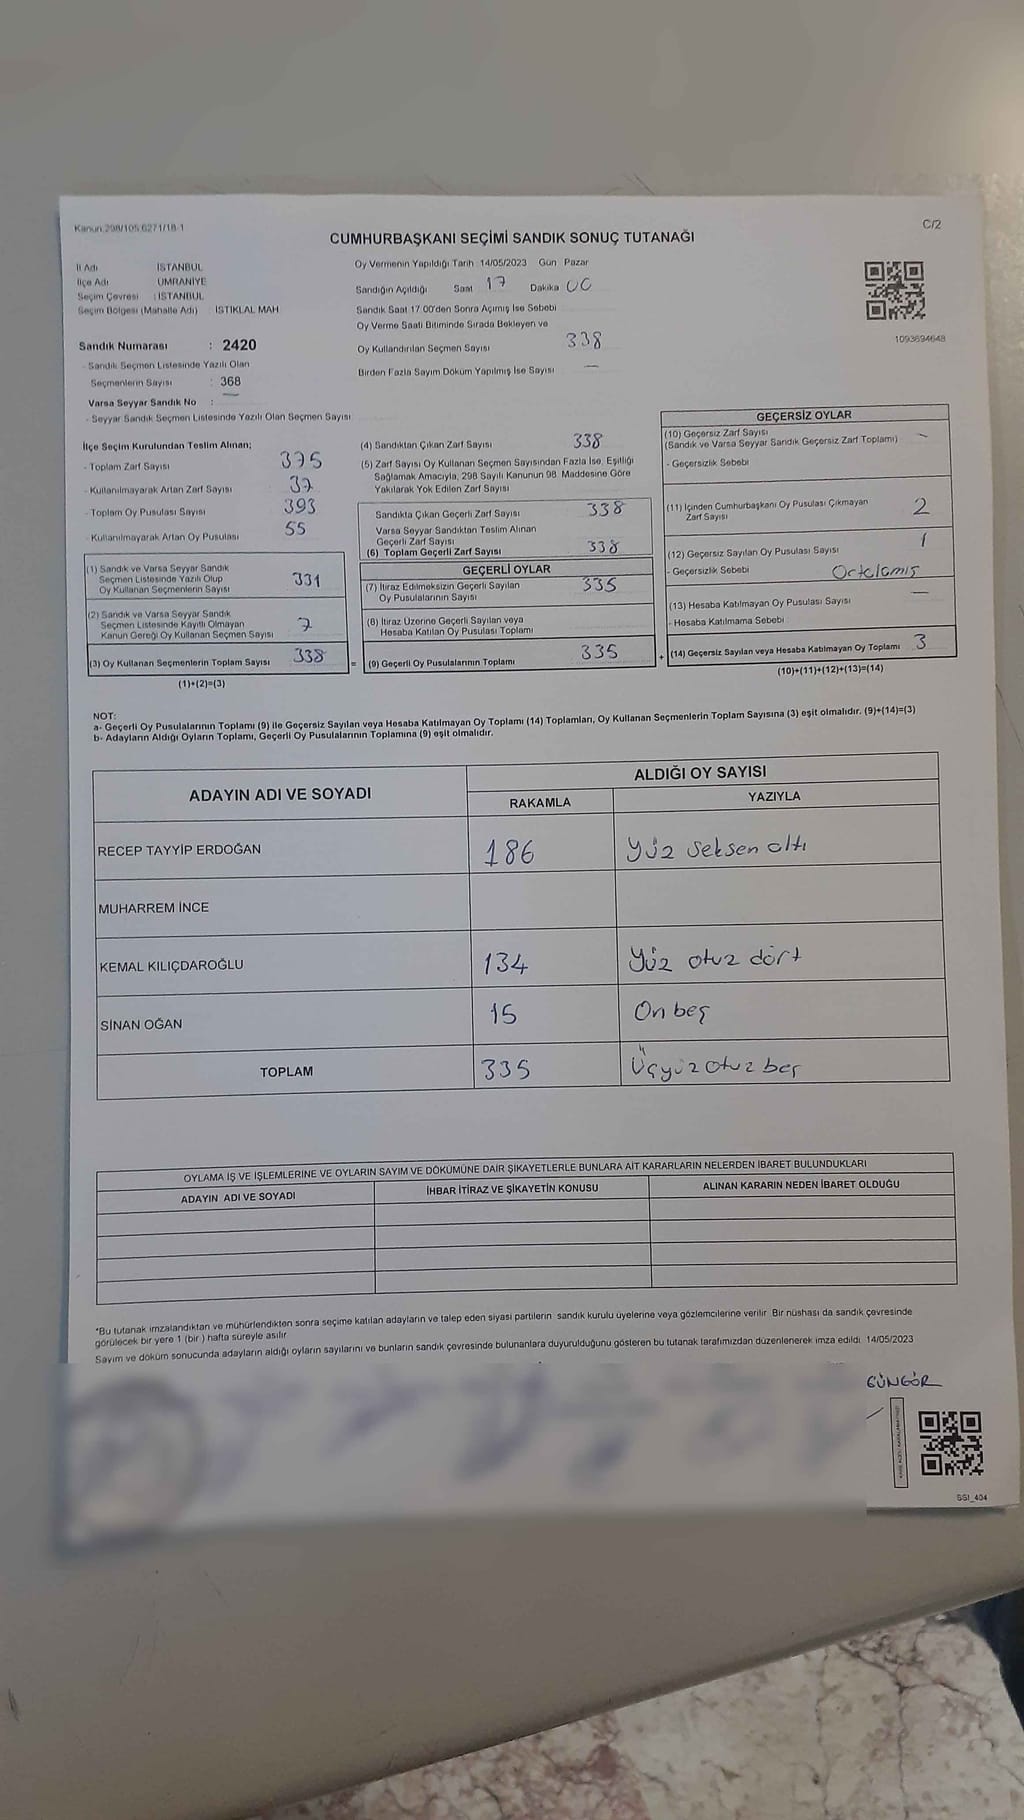 Kanun 298/105 6271/18-1
C/2
CUMHURBAŞKANI SEÇİMİ SANDIK SONUÇ TUTANAĞI
İl Adı İSTANBUL
İlçe Adı ÜMRANİYE
Seçim Çevresi : İSTANBUL
Seçim Bölgesi (Mahalle Adı) İSTİKLAL MAH
Sandık Numarası : 2420
- Sandık Seçmen Listesinde Yazılı Olan
Seçmenlerin Sayısı : 368
Varsa Seyyar Sandık No : —
- Seyyar Sandık Seçmen Listesinde Yazılı Olan Seçmen Sayısı
Oy Vermenin Yapıldığı Tarih 14/05/2023 Gün Pazar
Sandığın Açıldığı Saat 17 Dakika 00
Sandık Saat 17.00'den Sonra Açımış İse Sebebi
Oy Verme Saati Bitiminde Sırada Bekleyen ve
Oy Kullandırılan Seçmen Sayısı 338
Birden Fazla Sayım Döküm Yapılmış İse Sayısı —
1093694648
İlçe Seçim Kurulundan Teslim Alınan;
- Toplam Zarf Sayısı 375
- Kullanılmayarak Artan Zarf Sayısı 37
- Toplam Oy Pusulası Sayısı 393
- Kullanılmayarak Artan Oy Pusulası 55
(1) Sandık ve Varsa Seyyar Sandık
Seçmen Listesinde Yazılı Olup
Oy Kullanan Seçmenlerin Sayısı 331
(2) Sandık ve Varsa Seyyar Sandık
Seçmen Listesinde Kayıtlı Olmayan
Kanun Gereği Oy Kullanan Seçmen Sayısı 7
(3) Oy Kullanan Seçmenlerin Toplam Sayısı 338
(1)+(2)=(3)
(4) Sandıktan Çıkan Zarf Sayısı 338
(5) Zarf Sayısı Oy Kullanan Seçmen Sayısından Fazla İse, Eşitliği
Sağlamak Amacıyla, 298 Sayılı Kanunun 98. Maddesine Göre
Yakılarak Yok Edilen Zarf Sayısı
Sandıkta Çıkan Geçerli Zarf Sayısı 338
Varsa Seyyar Sandıktan Teslim Alınan
Geçerli Zarf Sayısı
(6) Toplam Geçerli Zarf Sayısı 338
GEÇERLİ OYLAR
(7) İtiraz Edilmeksizin Geçerli Sayılan
Oy Pusulalarının Sayısı 335
(8) İtiraz Üzerine Geçerli Sayılan veya
Hesaba Katılan Oy Pusulası Toplamı
= (9) Geçerli Oy Pusulalarının Toplamı 335
GEÇERSİZ OYLAR
(10) Geçersiz Zarf Sayısı
(Sandık ve Varsa Seyyar Sandık Geçersiz Zarf Toplamı) —
- Geçersizlik Sebebi
(11) İçinden Cumhurbaşkanı Oy Pusulası Çıkmayan
Zarf Sayısı 2
(12) Geçersiz Sayılan Oy Pusulası Sayısı 1
- Geçersizlik Sebebi Ortalamış
(13) Hesaba Katılmayan Oy Pusulası Sayısı —
- Hesaba Katılmama Sebebi
+ (14) Geçersiz Sayılan veya Hesaba Katılmayan Oy Toplamı 3
(10)+(11)+(12)+(13)=(14)
NOT:
a- Geçerli Oy Pusulalarının Toplamı (9) ile Geçersiz Sayılan veya Hesaba Katılmayan Oy Toplamı (14) Toplamları, Oy Kullanan Seçmenlerin Toplam Sayısına (3) eşit olmalıdır. (9)+(14)=(3)
b- Adayların Aldığı Oyların Toplamı, Geçerli Oy Pusulalarının Toplamına (9) eşit olmalıdır.
ADAYIN ADI VE SOYADI
ALDIĞI OY SAYISI
RAKAMLA YAZIYLA
RECEP TAYYİP ERDOĞAN 186 Yüz seksen altı
MUHARREM İNCE
KEMAL KILIÇDAROĞLU 134 Yüz otuz dört
SİNAN OĞAN 15 On beş
TOPLAM 335 Üçyüz otuz beş
OYLAMA İŞ VE İŞLEMLERİNE VE OYLARIN SAYIM VE DÖKÜMÜNE DAİR ŞİKAYETLERLE BUNLARA AİT KARARLARIN NELERDEN İBARET BULUNDUKLARI
ADAYIN ADI VE SOYADI İHBAR İTİRAZ VE ŞİKAYETİN KONUSU ALINAN KARARIN NEDEN İBARET OLDUĞU
*Bu tutanak imzalandıktan ve mühürlendikten sonra seçime katılan adayların ve talep eden siyasi partilerin sandık kurulu üyelerine veya gözlemcilerine verilir. Bir nüshası da sandık çevresinde
görülecek bir yere 1 (bir ) hafta süreyle asılır
Sayım ve döküm sonucunda adayların aldığı oyların sayılarını ve bunların sandık çevresinde bulunanlara duyurulduğunu gösteren bu tutanak tarafımızdan düzenlenerek imza edildi. 14/05/2023
GÜNGÖR
SSI_404